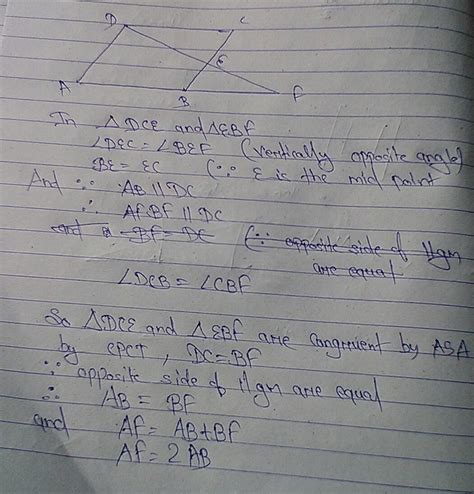 D C
E
A B F
In △DCE and △EBF
∠DEC = ∠BEF (Vertically opposite angle)
BE = EC (∵ E is the mid point
And ∵ AB || DC
∴ AF BF || DC
and BF = DC (∵ opposite side of ||gm
are equal
∠DCB = ∠CBF
So △DCE and △EBF are congruent by ASA
by CPCT, DC = BF
∵ opposite side of ||gm are equal
∴ AB = BF
and AF = AB + BF
AF = 2 AB